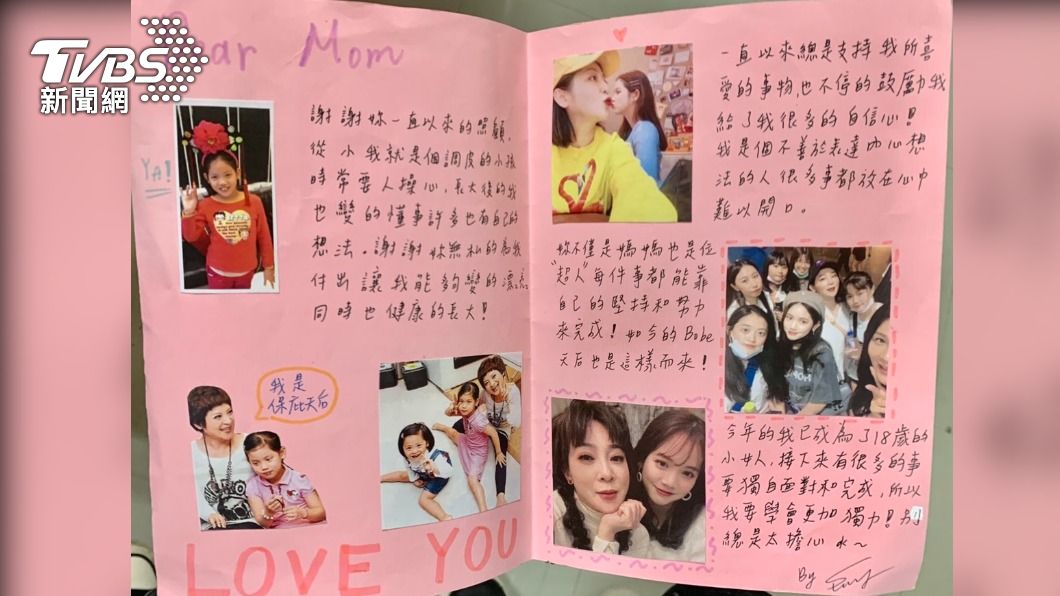 TVBS
新聞網
Dear Mom
YA!
謝謝妳一直以來的照顧,
從小我就是個調皮的小孩
時常要人操心,長大後的我
也變的懂事許多也有自己的
想法.謝謝妳無私的為我
付出讓我能夠變的漂亮
同時也健康的長大!
我是
保庇天后
LOVE YOU
一直以來總是支持我所喜
愛的事物,也不停的鼓勵我
給了我很多的自信心!
我是個不善於表達內心想
法的人很多事都放在心中
難以開口。
妳不僅是媽媽也是位
"超人"每件事都能靠
自己的堅持和努力
來完成!如今的Bobe
天后也是這樣而來!
今年的我已成為了18歲的
小女人,接下來有很多的事
要獨自面對和完成,所以
我要學會更加獨力!別
總是太擔心ㄛ~
By